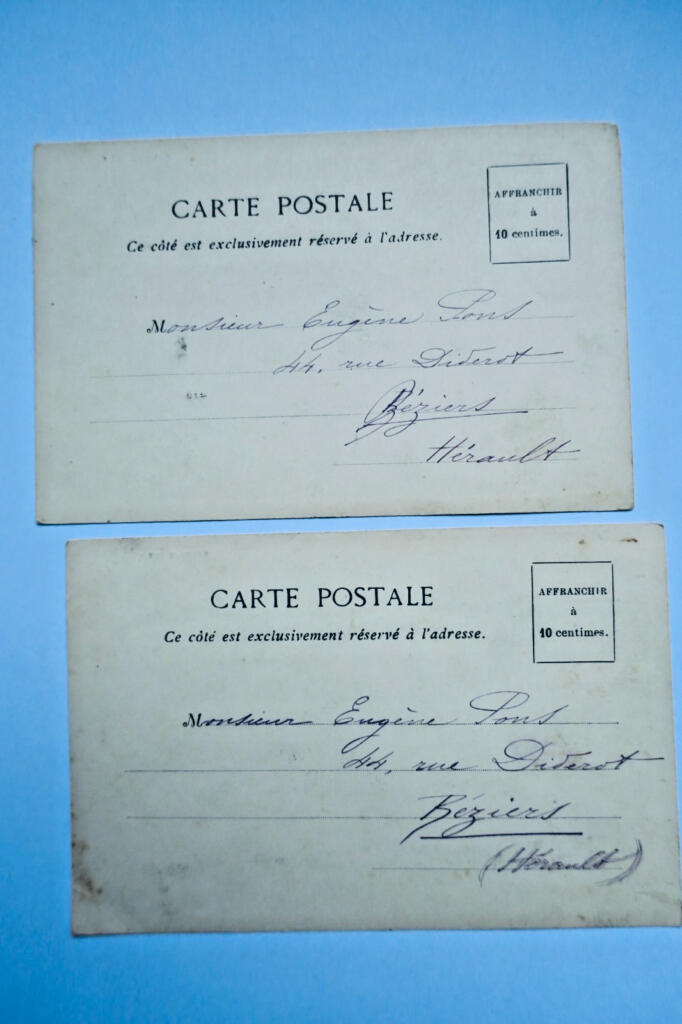 CARTE POSTALE
Ce côté est exclusivement réservé à l'adresse.
AFFRANCHIR
à
10 centimes.
Monsieur Eugène Pons
44, rue Diderot
Béziers
Hérault
CARTE POSTALE
Ce côté est exclusivement réservé à l'adresse.
AFFRANCHIR
à
10 centimes.
Monsieur Eugène Pons
44, rue Diderot
Béziers
(Hérault)